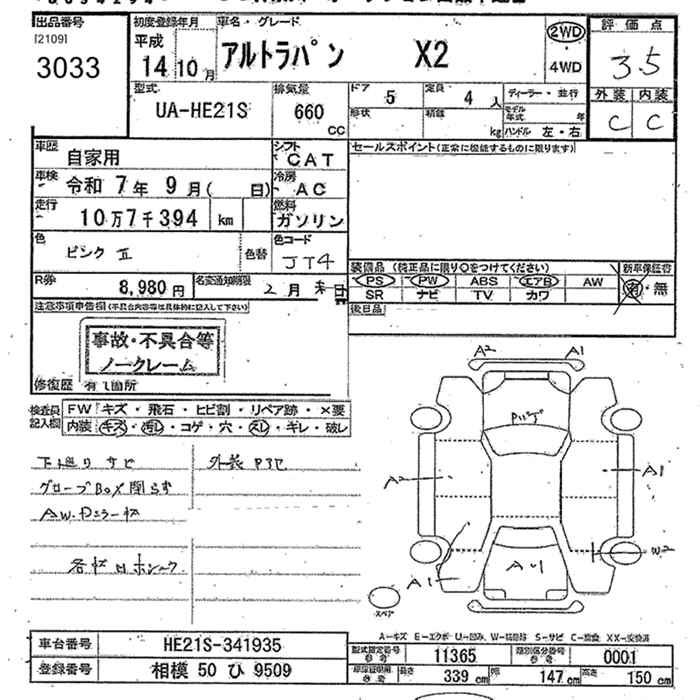 出品番号 初度登録年月 車名・グレード 評価点
[2109] 平成 アルトラパン X2 2WD
3033 14 10月 4WD 3.5
型式 排気量 ドア 5 定員 4人 ディーラー・並行 外装 内装
UA-HE21S 660 cc 形状 積載 kg モデル年式 年 C C
ハンドル 左・右
車歴 自家用 シフト CAT セールスポイント(正常に機能するものに限ります)
車検 令和 7年 9月( 日) 冷房 AC
走行 10万7千394 km 燃料 ガソリン
色 ピンクⅡ 色替 色コード JT4
装備品 (純正品に限り○をつけてください) 新車保証書
PS PW ABS エアB AW 有・無
R券 8,980円 名変通知期限 2月末日 SR ナビ TV カワ
注意事項申告欄(不具合内容等は具体的に記入して下さい) 後日品
事故・不具合等
ノークレーム
修復歴 有 1箇所
検査員記入欄 FW キズ・飛石・ヒビ割・リペア跡・×要
内装 キズ・汚レ・コゲ・穴・スレ・キレ・破レ
下廻りサビ
グローブBOX閉らず
A2 A1
A2 A1
A1 W2
スペア
A-キズ E-エクボ U-凹み W-補修跡 S-サビ C-腐食 XX-交換済
車台番号 HE21S-341935 型式指定番号 参考 11365 類別区分番号 参考 0001
登録番号 相模 50 ひ 9509 長さ 339 cm 幅 147 cm 高さ 150 cm